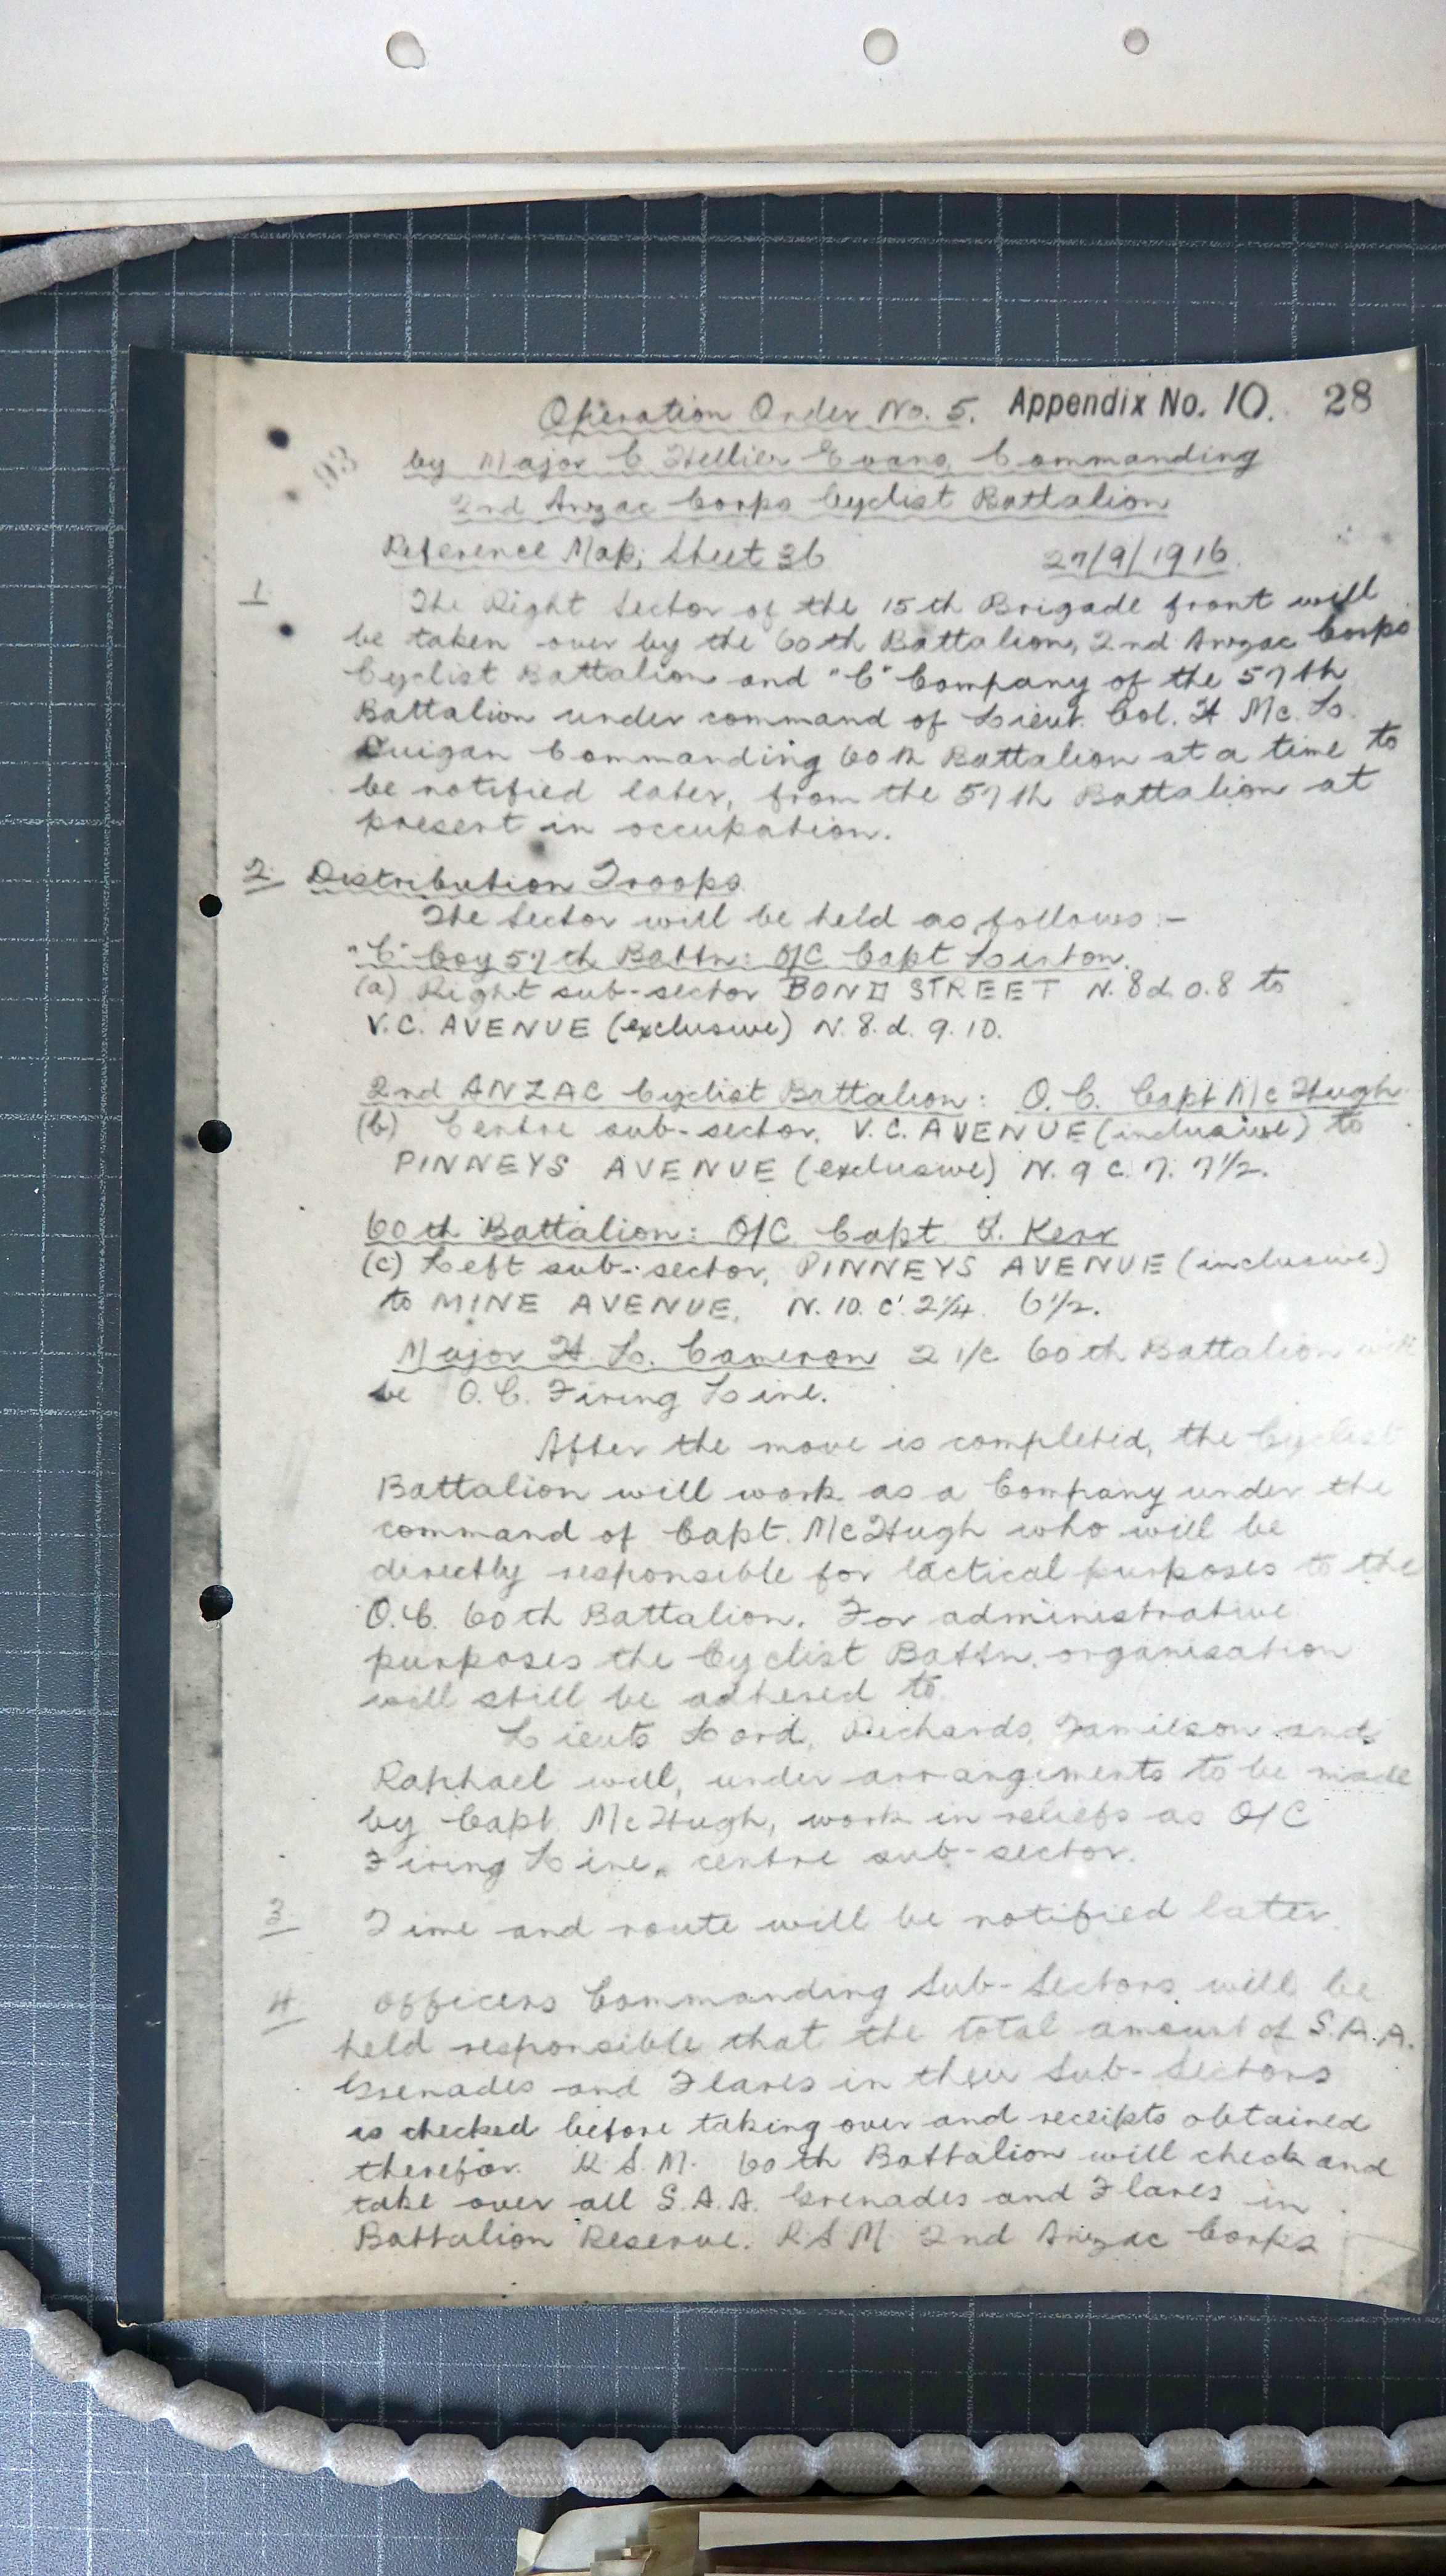 Operation Order No. 5. Appendix No. 10. 28
by Major C Hellier Evans, Commanding
2nd Anzac Corps Cyclist Battalion
93
Reference Map; Sheet 36 27/9/1916.
1 The Right Sector of the 15th Brigade front will
be taken over by the 60th Battalion, 2nd Anzac Corps
Cyclist Battalion and "C" Company of the 57th
Battalion under command of Lieut. Col. H. Mc. L.
Duigan Commanding 60th Battalion at a time to
be notified later, from the 57th Battalion at
present in occupation.
2 Distribution Troops
The Sector will be held as follows :-
"C" Coy 57th Battn: O/C Capt Liston.
(a) Right sub-sector BOND STREET N. 8 d. 0.8 to
V.C. AVENUE (exclusive) N. 8. d. 9. 10.
2nd ANZAC Cyclist Battalion: O.C. Capt McHugh
(b) Centre sub-sector, V.C. AVENUE (inclusive) to
PINNEYS AVENUE (exclusive) N. 9 c. 7. 7½.
60th Battalion: O/C. Capt. T. Kerr
(c) Left sub-sector, PINNEYS AVENUE (inclusive)
to MINE AVENUE, N. 10. c. 2¼. 6½.
Major H. L. Cameron 2 i/c 60th Battalion will
be O.C. Firing Line.
After the move is completed, the Cyclist
Battalion will work as a Company under the
command of Capt. McHugh who will be
directly responsible for tactical purposes to the
O.C. 60th Battalion. For administrative
purposes the Cyclist Battn. organisation
will still be adhered to.
Lieuts Lord, Richards, Jamieson and
Raphael will, under arrangements to be made
by Capt. McHugh, work in reliefs as O/C
Firing Line, centre sub-sector.
3 Time and route will be notified later.
4 Officers Commanding Sub-Sectors will be
held responsible that the total amount of S.A.A.
Grenades and Flares in their Sub-Sectors
is checked before taking over and receipts obtained
therefor. R.S.M. 60th Battalion will check and
take over all S.A.A. Grenades and Flares in
Battalion Reserve. R S M 2nd Anzac Corps